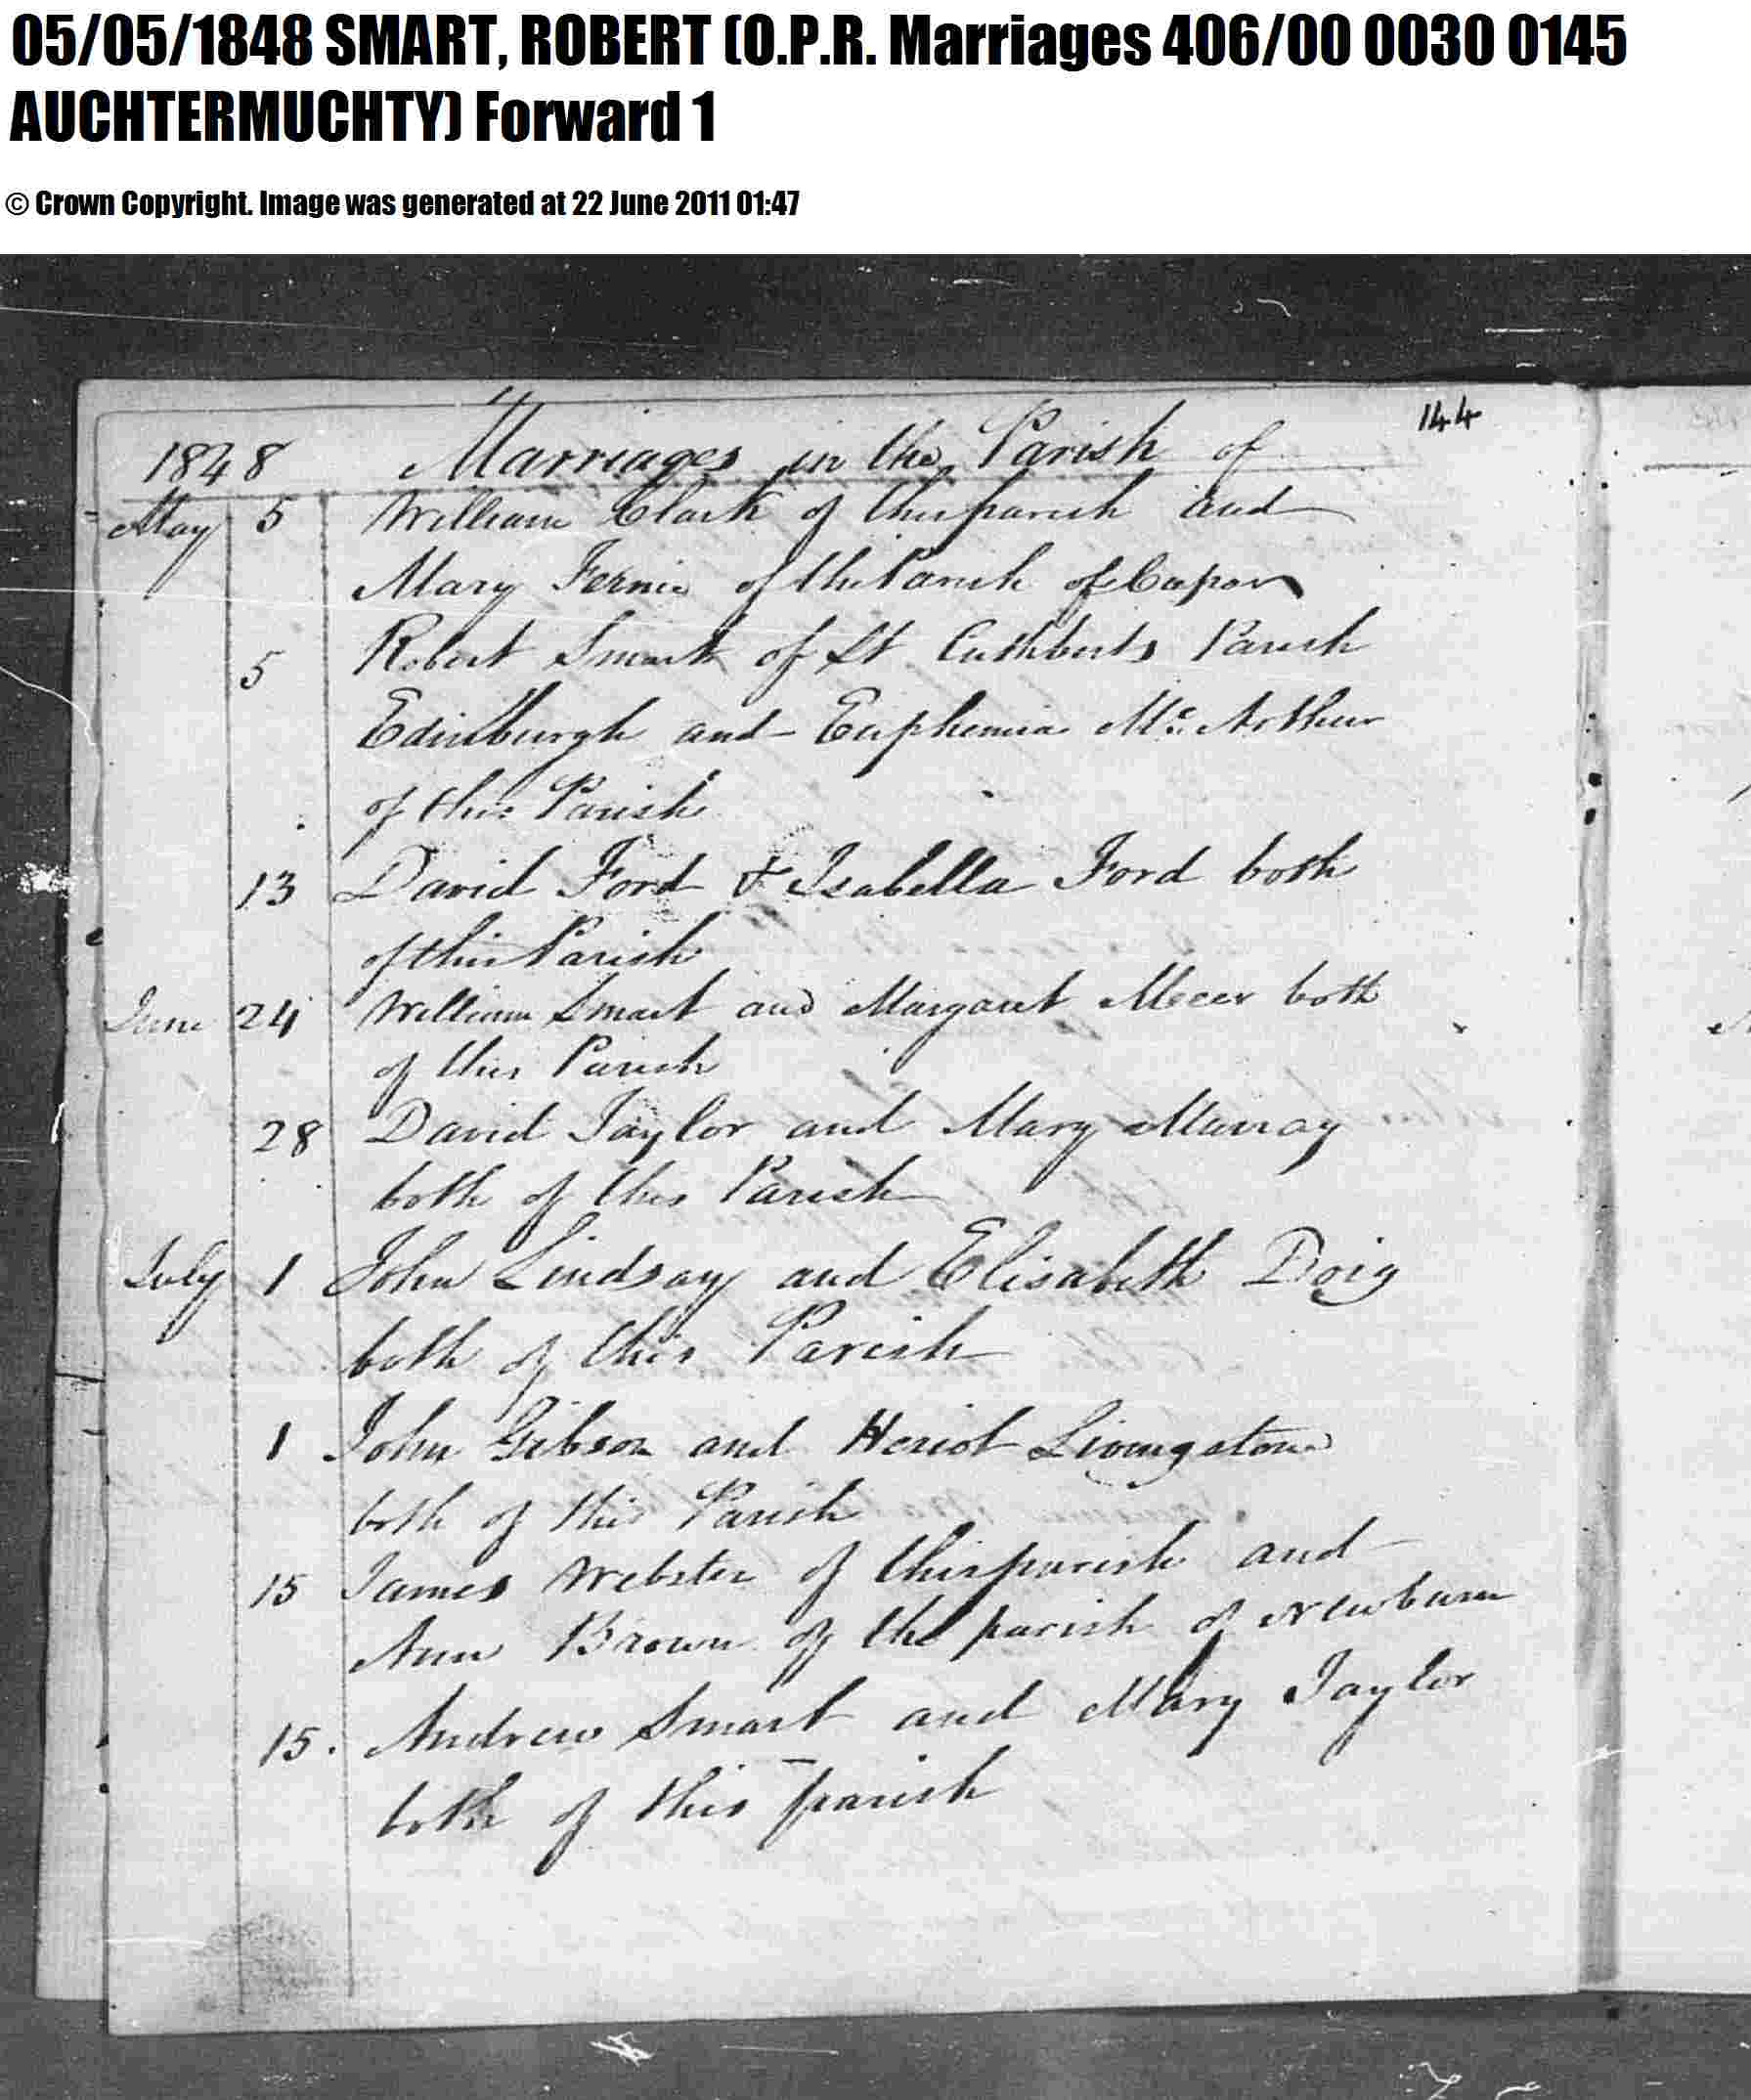 05/05/1848 SMART, ROBERT (O.P.R. Marriages 406/00 0030 0145
AUCHTERMUCHTY) Forward 1
© Crown Copyright. Image was generated at 22 June 2011 01:47
144
1848 Marriages in the Parish of
May 5 William Clark of this parish and
Mary Fernie of the Parish of Cupar
5 Robert Smart of St Cuthberts Parish
Edinburgh and Euphemia Mc. Arthur
of this Parish
13 David Ford & Isabella Ford both
of this Parish
June 24 William Smart and Margaret both
of this Parish
28 David Taylor and Mary Murray
both of this Parish
July 1 John Lindsay and Elisabeth Doig
both of this Parish
1 John Gibson and Heriot Livingstone
both of this Parish
15 James Webster of this parish and
Ann Brown of the parish of Newburn
15. Andrew Smart and Mary Taylor
both of this parish